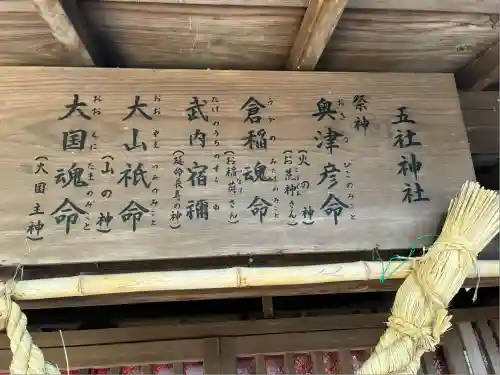 五社神社
祭神
奥津彦命
おきつひこのみこと
(火の神)
(お荒神さん)
倉稲魂命
うがのみたけのみこと
(お稲荷さん)
武内宿禰
たけのうちのすくね
(延命長寿の神)
大山祇命
おおやまつみのみこと
(山の神)
大国魂命
おおくにたまのみこと
(大国主神)